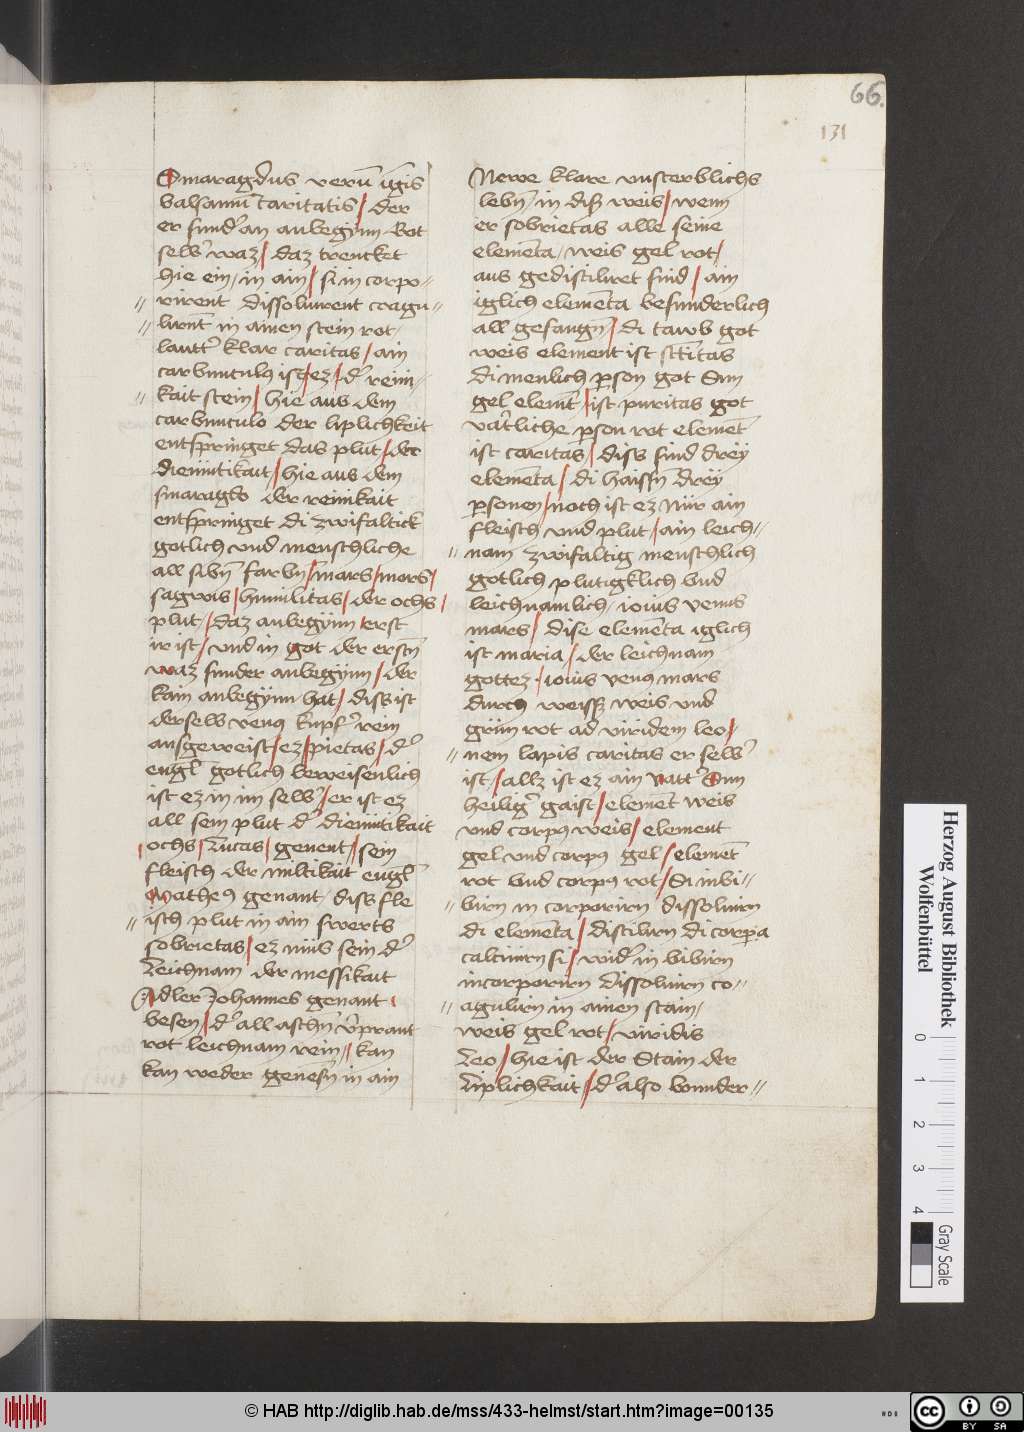 66.
131
Smaragdus verū ignis
balsamū caritatis / der
er sund' an anbegÿnn Got
selb' waz / daz trencket
hie ein / in ain / si in corpo-
rirent dissoluirent coagu-
lirnt in ainen stein rot
lautt' klar caritas / ain
carbunculus ist / ez / d' reini-
kait stein / hie aus dem
carbunculo der liplichkeit
entspringet das plut / der
diemütikait / hie aus dem
smaragdo der reinikait
entspringet di zwifaltick
gotlich vnd menschliche
all sibn farbn / mars / mors /
sagwis / humilitas / der ochs /
plut / daz anbegÿnn erst
ir ist / vnd in got der erstn
waz sunder anbegÿnn / der
kain anbegÿnn hat / diss ist
derselb venus kupf' rein
ausgeweist / ez / pietas / d'
engl gotlich beweisenlich
ist ez in im selb' / er ist ez
all sein plut d' diemütikait
ochs / Lucas / genent / sein
fleisch der miltikait engl
Matheus genant diss fle
isch plut in ain swerts
sobrietas / ez mus sein d'
Leichnam der messikait
Adler Johannes genant
besen / d' all aschn v'prant
rot leichnam rein / kan
kan weder genesn in ain
Newe klare vnsterblichs
lebn in diß weis / wenn
er sobrietas alle seine
elementa / weis gel rot /
aus gedistiliret sind / ain
iglich elementa besunderlich
all gefangn / di tawb got
weis element ist
di menlich person got Sun
gel elemt / ist puritas got
vätliche person rot elemet
ist caritas / diss sind dreÿ
elementa / di haissn dreÿ
personen / noch ist ez nür ain
fleisch vnd plut / ain leich-
nam zwifaltig menschlich
gotlich plutigklich vnd
leichnamlich / iouis venus
mars / dise elementa iglich
ist maria / der leichnam
gottez / iouis venus mars
durch weissz weis vnd
grün rot ad viridem leo /
nem lapis caritas er selb'
ist / allz ist ez ain vatt' Sun
heilig' gaist / elemēt weis
vnd corpus weis / element
gel vnd corpus gel / elemēt
rot vnd corpus rot / Di inbi-
birn in corporirn dissoluirn
di elementa / distilirn di corpora
calcinirn si / wid' in bibirn
incorporirn Dissoluirn co-
agulirn in ainen stain
weis gel rot / viridis
Leo / hie ist der Stain der
Liplichkait / d' also bounder-
Herzog August Bibliothek
Wolfenbüttel
0 1 2 3 4
Gray Scale
© HAB http://diglib.hab.de/mss/433-helmst/start.htm?image=00135
HAB
cc BY SA